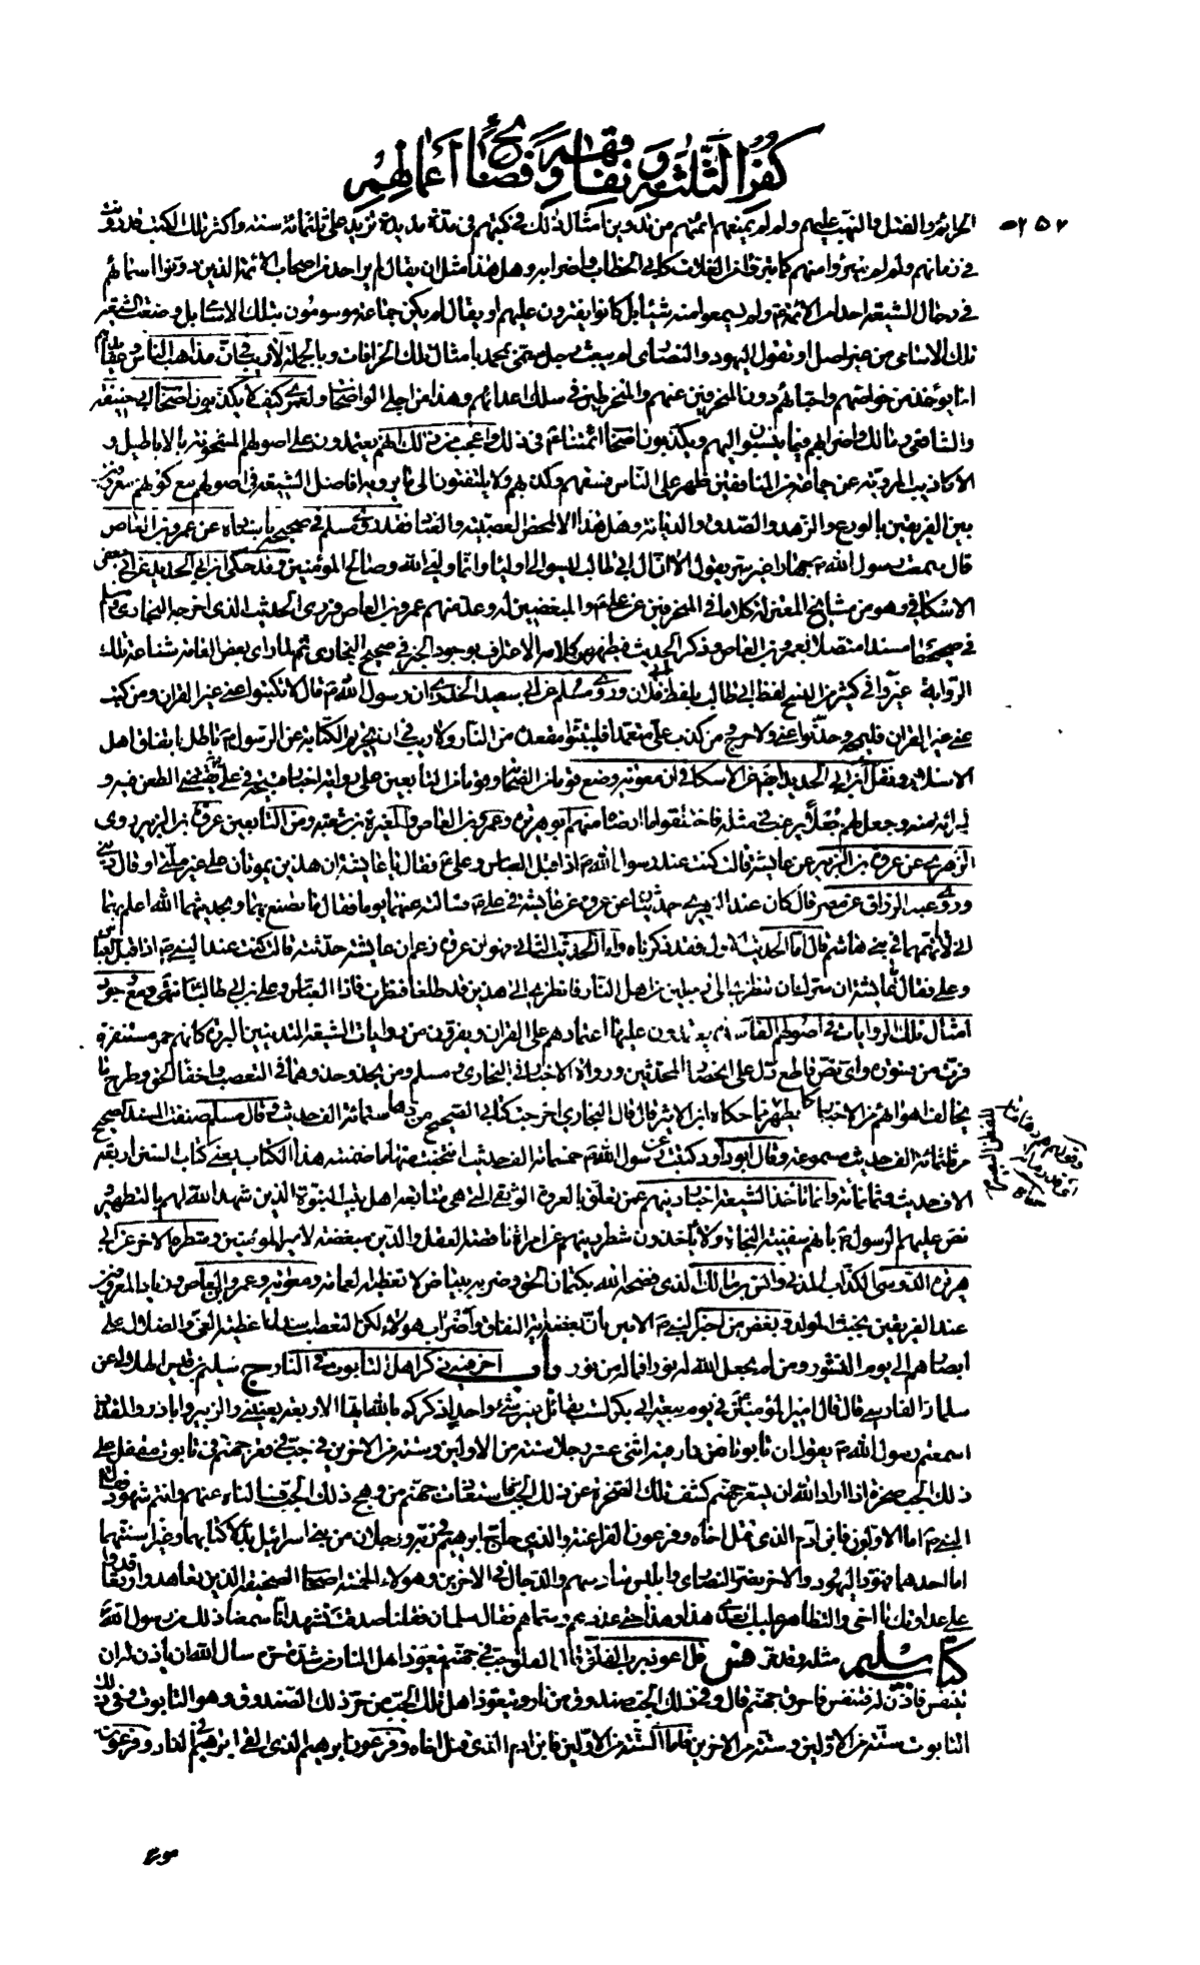 كفر الثلثة و نفاقهم و فضائح أعمالهم
٢٥٢
الجرائم والقتل والنهب عليهم ولو لم يمنعهم ائمتهم من تدوين امثال ذلك في كتبهم في مدة مديدة تزيد على ثلثمائة سنة واكثر تلك الكتب قد دونت
في زمانهم ولم لم يتبرؤا منهم كما تبرؤا من الغلاة كابي الخطاب واضرابه وهل هذا مثل ان يقال لم ير احد من اصحاب الائمة الذين دونوا اسمائهم
في رجال الشيعة احدا من الائمة ع ولم يسمعوا منه شيئا بل كانوا يفترون عليهم او يقال لم يكن جماعة موسومون بتلك الاسامي بل وضعت الشيعة
تلك الاسامي من غير اصل او تقول اليهود والنصارى لم يبعث رجل مسمى بمحمد بامثال تلك الخرافات وبالجملة لا ريب في ان مذاهب الناس وعقايدهم
انما يؤخذ من خواصهم واحبائهم دون المنحرفين عنهم والمنخرطين في سلك اعدائهم وهذا من اجلى الواضحات ولعمري كيف لا يكذبون اصحاب ابي حنيفة
والشافعي ومالك واضرابهم فيما ينسبون اليهم ويكذبون اصحاب ائمتنا ع في ذلك واعجب من ذلك انهم يعتمدون على اصولهم المشحونة بالاباطيل و
الاكاذيب المروية عن جماعة من المنافقين ظهر على الناس فسقهم وكذبهم ولا يلتفتون الى ما يرويه افاضل الشيعة في اصولهم مع كونهم معروفين
بين الفريقين بالورع والزهد والصدق والديانة وهل هذا الا لمحض العصبية والعناد فقد روى مسلم في صحيحه باسناده عن عمرو بن العاص
قال سمعت رسول الله ص جهارا غير سر يقول الا ان ال ابي طالب ليسوا لي اولياء وانما وليي الله وصالح المؤمنين وقد حكى ابن ابي الحديد عن ابي جعفر
الاسكافي وهو من مشايخ المعتزلة كلاما في المنحرفين عن علي ع والمبغضين له وعد منهم عمرو بن العاص فروى الحديث الذي اخرجه البخاري ومسلم
في صحيحهما مسندا متصلا بعمرو بن العاص وذكر الحديث فيظهر من كلامه الاعتراف بوجود الخبر في صحيح البخاري ثم لما راى بعض العامة شناعة تلك
الرواية غيروا في كثير من النسخ لفظ ابي طالب بلفظ فلان وروى مسلم عن ابي سعيد الخدري ان رسول الله ص قال لا تكتبوا عني غير القران ومن كتب
عني غير القران فليمحه وحدثوا عني ولا حرج من كذب علي متعمدا فليتبوأ مقعده من النار ولا ريب في ان تحريم الكتابة عن الرسول ص باطل باتفاق اهل
الاسلام ونقل ابن ابي الحديد ايضا عن الاسكافي ان معوية وضع قوما من الصحابة وقوما من التابعين على رواية اخبار قبيحة في علي ع تقتضي الطعن فيه و
البرائة منه وجعل لهم جعلا يرغب في مثله فاختلقوا ما ارضاه منهم ابو هريرة وعمرو بن العاص والمغيرة بن شعبة ومن التابعين عروة بن الزبير روى
الزهري عن عروة بن الزبير عن عايشة قالت كنت عند رسول الله ص اذ اقبل العباس وعلي ع فقال يا عايشة ان هذين يموتان على غير ملتي او قال ديني
وروى عبد الرزاق عن معمر قال كان عند الزهري حديثان عن عروة عن عايشة في علي ع فسألته عنهما يوما فقال ما تصنع بهما وبحديثهما الله اعلم بهما
اني لاتهمهما في بني هاشم قال اما الحديث الاول فقد ذكرناه واما الحديث الثاني فهو ان عروة زعم ان عايشة حدثته قالت كنت عند النبي ص اذ اقبل العباس
وعلي فقال يا عايشة ان سرك ان تنظري الى رجلين من اهل النار فانظري الى هذين قد طلعا فنظرت فاذا العباس وعلي بن ابي طالب انتهى ومع وجود
امثال تلك الروايات في اصولهم الفاسدة يعتمدون عليها اعتمادهم على القران ويفرون من روايات الشيعة المتدينين البررة كانهم حمر مستنفرة
فرت من قسورة واي نص قاطع دل على انحصار المحدثين ورواة الاخبار في البخاري ومسلم ومن يحذو حذوهما في التعصب واخفاء الحق وطرح ما
يخالف اهوائهم من الاخبار كما يظهر مما حكاه ابن الاثير قال قال البخاري اخرجت كتابي الصحيح من زهاء ستمائة الف حديث وقال مسلم صنفت المسند الصحيح
من ثلثمائة الف حديث مسموعة وقال ابو داود كتبت عن رسول الله ص خمسمائة الف حديث انتخبت منها ما ضمنته هذا الكتاب يعني كتاب السنن اربعة
الاف حديث وثمانمائة وانما تاخذ الشيعة اخبار دينهم عمن تعلق بالعروة الوثقى التي هي متابعة اهل بيت النبوة الذين شهد الله لهم بالتطهير
ونص عليهم الرسول ص بانهم سفينة النجاة ولا ياخذون شطر دينهم عن امراة ناقصة العقل والدين مبغضة لامير المؤمنين وشطره الاخر عن ابي
هريرة الدوسي الكذاب المدني وانس بن مالك الذي فضحه الله بكتمان الحق وضربه ببياض لا تغطيه العمامة ومعوية وعمرو بن العاص وزياد المعروفين
عند الفريقين بخبث المولد وبغض من اخبر النبي ص الامين بان بغضه اية النفاق واضراب هؤلاء لكن التعصب اسدل اغطية الغي والضلال على
ابصارهم الى يوم النشور ومن لم يجعل الله له نورا فما له من نور
باب اخر فيه ذكر اهل التابوت في النار ج سليم بن قيس الهلالي عن
سلمان الفارسي قال قال امير المؤمنين في يوم بيعة ابي بكر لست بقائل غير شيء واحد اذكركم بالله ايها الاربعة يعنيني والزبير وابا ذر والمقداد
اسمعتم رسول الله ص يقول ان تابوتا من نار فيه اثني عشر رجلا ستة من الاولين وستة من الاخرين في جب في قعر جهنم في تابوت مقفل على
ذلك الجب صخرة اذا اراد الله ان يسعر جهنم كشف تلك الصخرة عن ذلك الجب فاستعاذت جهنم من وهج ذلك الجب فسالناه عنهم وانتم شهود فقال
النبي ص اما الاولون فابن ادم الذي قتل اخاه وفرعون الفراعنة والذي حاج ابرهيم في ربه ورجلان من بني اسرائيل بدلا كتابهما وغيرا سنتهما
اما احدهما فهود اليهود والاخر نصر النصارى وابليس سادسهم والدجال في الاخرين وهؤلاء الخمسة اصحاب الصحيفة الذين تعاهدوا وتعاقدوا
على عداوتك يا اخي والتظاهر عليك بعدي هذا وهذا حتى عدهم وسماهم فقال سلمان فقلنا صدقت نشهد انا سمعنا ذلك من رسول الله ص
كتاب سليم مثله وقد مر فس قل اعوذ برب الفلق قال الفلق جب في جهنم يتعوذ اهل النار من شدة حره سال الله ان ياذن له ان
يتنفس فاذن له فتنفس فاحرق جهنم قال وفي ذلك الجب صندوق من نار يتعوذ اهل تلك الجب من حر ذلك الصندوق وهو التابوت وفي ذلك
التابوت ستة من الاولين وستة من الاخرين فاما الستة من الاولين فابن ادم الذي قتل اخاه وفرعون ابرهيم الذي القى ابرهيم في النار وفرعون